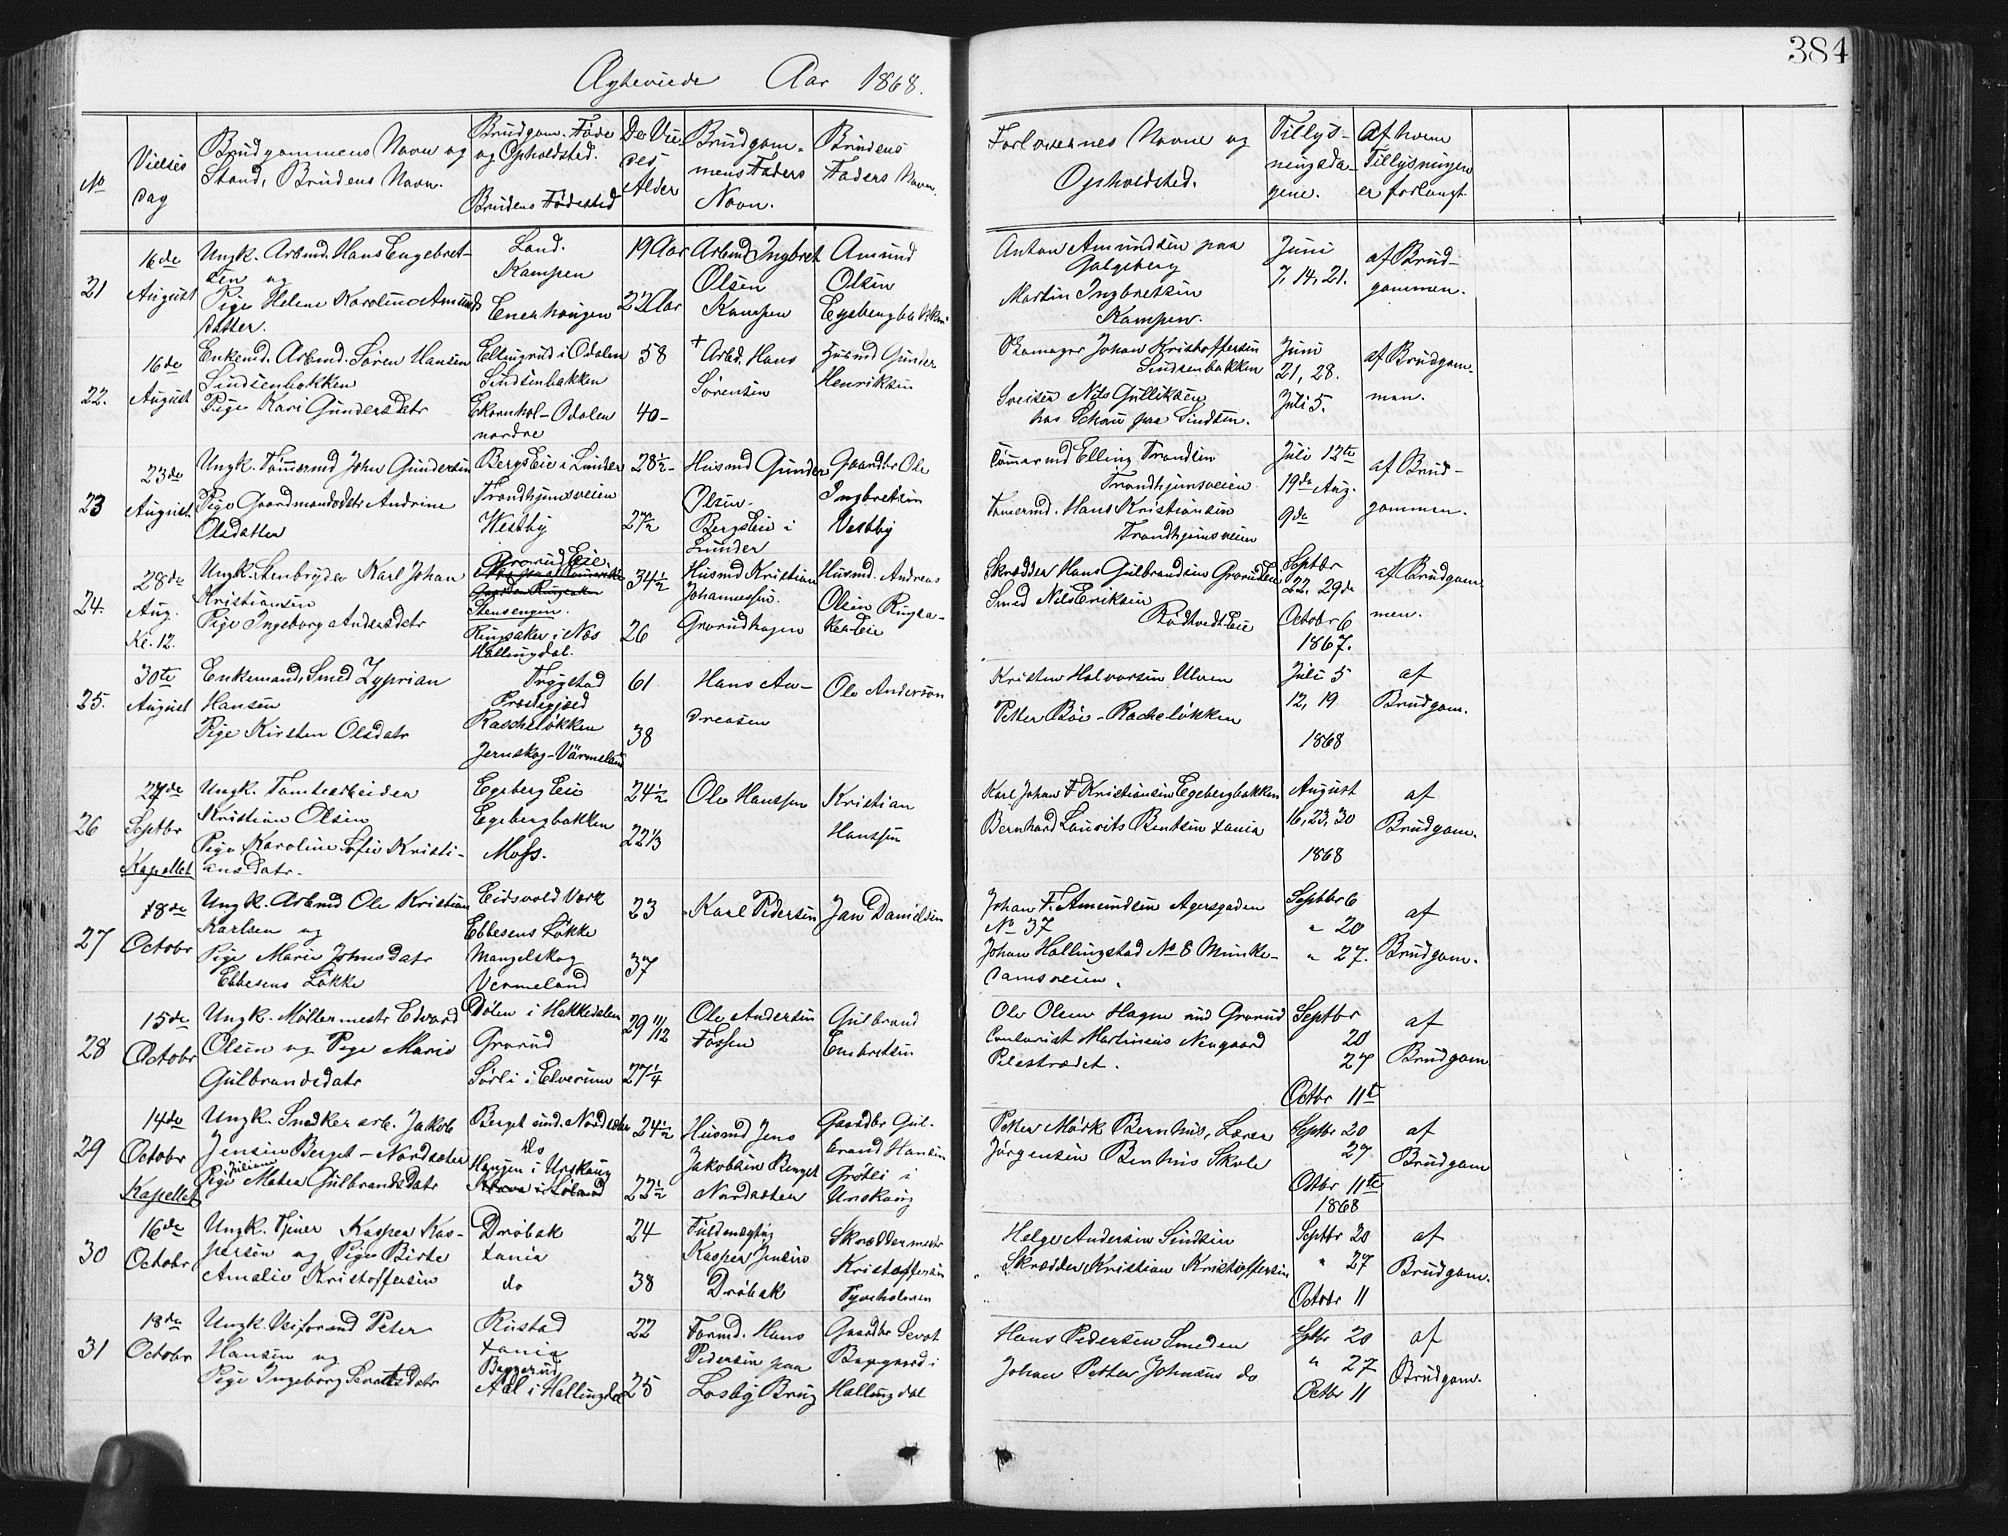 384
Ægteviede Aar 1868.
No
Vielses
dag
Brudgommens Navn og
Stand, Brudens Navn.
Brudgom. Føde
og Opholdsted.
Brudens Fødested
De Vie-
des
Alder
Brudgom-
mens Faders
Navn.
Brudens
Faders Navn.
Forlovernes Navne og
Opholdsted.
Tillys-
ningsda-
gene.
Af hvem
Tillysningen
er forlangt
21
16de
August
Ungk. Arbmd. Hans Engebret-
sen og
Pige Helene Karoline Amunds
datter.
Land.
Kampen
Enerhaugen
19 Aar
22 Aar
Arbmd Ingbret
Olsen
Kampen
Amund
Olsen
Egebergbakken
Anton Amundsen paa
Galgeberg
Martin Ingbretsen
Kampen.
Juni
7, 14, 21.
af Brud-
gommen.
22.
16de
August
Enkemd. Arbmd. Søren Hansen
Sindsenbakken
Pige Kari Gundersdatr
Ellingrud i Odalen
Sindsenbakken
Ekornhol-Odalen
nordre
58
40-
+ Arbd. Hans
Sørensen
Husmd Gunder
Henriksen
Skomager Johan Kristoffersen
Sindsenbakken
Sveiser Nils Gulliksen
hos Schou paa Sindsen.
Juni
21, 28.
Juli 5.
af Brudgom-
men.
23
23de
August.
Ungk. Tømmermd John Gundersen
Pige Gaardmandsdatr Andrine
Olsdatter
Bergs Eie i Lunder
Trondhjemsveien
Vestby
28½-
27½
Husmd Gunder
Olsen-
Bergs Eie i
Lunder
Gaardbr Ole
Ingbretsen
Vestby
Tømmermd Elling Trondsen
Trondhjemsveien
Tømermd. Hans Kristiansen
Trondhjemsveien
Juli 12te
19de Aug.
9de
af Brud-
gommen.
24.
28de
Aug.
Kl. 12.
Ungk. Stenbryder Karl Johan
Kristiansen
Pige Ingeborg Andersdatr
Grorud Eie.
Stensengen.
Ringsaker i Nes
Hallingdal.
34½
26
Husmd Kristian
Johannessen.
Grorudhagen
Husmd. Andreas
Olsen Ringsa-
ker Eie
Skrædder Hans Gulbrandsen Grorud Eie
Smed Nils Eriksen
Rødtvedt Eie
Septbr
22, 29de
Octobr 6
1867.
af Brudgom
men.
25.
30te
August
Enkemand, Smed Zyprian
Hansen
Pige Kirsten Olsdatr
Trygstad
Præstegjeld
Rascheløkken
Jernskog-Värmeland
61
38
Hans An-
dreasen
Ole Anderson
Kristen Halvorsen Ulven
Petter Bøe - Racheløkken
Juli 5
12, 19
1868
af
Brudgom.
26
27de
Septbr
Kapellet
Ungk. Tomtearbeider
Kristian Olsen
Pige Karoline Sofie Kristi-
ansdatr.
Egeberg Eie
Egebergbakken
Moss.
24½
22⅓
Ole Hanssen
Kristian
Hanssen
Karl Johan F Kristiansen Egebergbakken
Bernhard Laurits Bentsen tania
August
16, 23, 30
1868
af
Brudgom.
27
18de
Octobr
Ungk. Arbmd Ole Kristian
Karlsen og
Pige Marie Johnsdatr
Ebbesens Løkke
Eidsvold Værk
Ebbesens Løkke
Mangelskog
Vermeland
23
37
Karl Pedersen
Jan Danielsen
Johan F. Amundsen Agersgaden
No 37
Johan Hallingstad No 8 Munke-
damsveien.
Septbr 6
" 20
" 27.
af
Brudgom.
28
15de
Octobr
Ungk. Møllermestr Edvard
Olsen og Pige Marie
Gulbrandsdatr
Dølen i Hakkedalen
Grorud
Sørli i Elverum
29 11/12
27¼
Ole Andersen
Fossen
Gulbrand
Embretsen
Ole Olsen Hagen und Grorud
Contorist Martinius Neugaard
Pilestrædet.
Septbr
20
27
Octbr 11te
af
Brudgom
29
14de
Octobr
Kapellet
Ungk. Snedker arb. Jakob
Jensen Berget - Nordsæter
Juliane
Pige Matea Gulbrandsdatr
Berget und. Nordsæter
do
Haugen i Urskoug
24½
22½
Husmd Jens
Jakobsen Berget
Nordsæter
Gaardbr Gul-
brand Hansen
Grøtli i
Urskoug
Petter Mørk Bernhus, Lærer
Jørgensen Bernhus Skole
Septbr 20
27
Octbr 11te
1868
af
Brudgom
30
16de
Octobr
Ungk. Tjener Kasper Kas-
persen og Pige Birte
Amalie Kristoffersen
Drøbak
tania
do
24
38
Fuldmægtig
Kasper Jensen
Drøbak
Skræddermestr
Kristoffersen
Tyveholmen
Helge Andersen Sindsen
Skrædder Kristian Kristoffersen
Septbr 20
" 27
Octobr 11
af
Brudgom.
31
18de
Octobr
Ungk. Veiformd Peter
Hansen og
Pige Ingeborg Sevatsdatr
Rustad
tania
Baggerud
Aal i Hallingdal
22
25
Formd. Hans
Pedersen paa
Losby Brug
Gaardbr Sevat
Bagaard i
Hallingdal
Hans Pedersen Smeden
Johan Petter Johnsens do
Sptbr 20
" 27
Octbr 11
af
Brudgom.